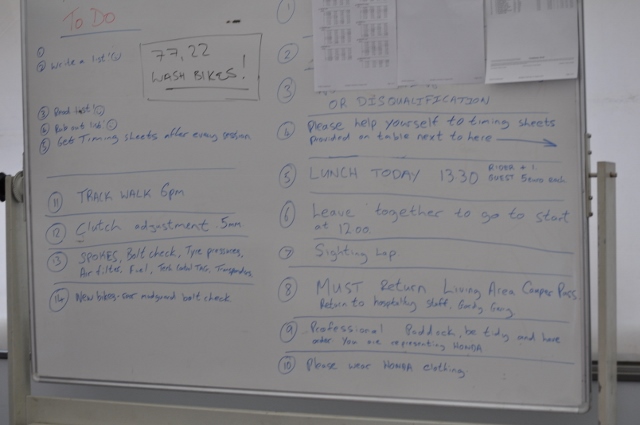 TO DO
①
② Write a list!
77, 22
WASH BIKES!
③ Read list!
④ Rub out list!
⑤ Get Timing sheets after every session
⑪ TRACK WALK 6pm
⑫ Clutch adjustment .5mm
⑬ SPOKES, Bolt check, Tyre pressures,
Air filter, Fuel,
⑭ New bikes- mudguard bolt check
①
②
③
OR DISQUALIFICATION
④ Please help yourself to timing sheets
provided on table next to here
⑤ LUNCH TODAY 1330 RIDER + 1
GUEST 5euro each
⑥ Leave together to go to start
at 1200
⑦ Sighting Lap
⑧ MUST Return Living Area Camper Pass
Return to hospitality staff,
⑨ Professional Paddock, be tidy and have
order You are representing HONDA
⑩ Please wear HONDA clothing